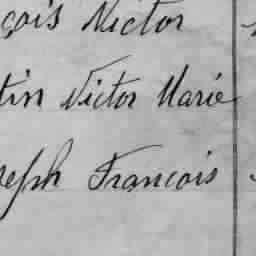 çois Victor
tin Victor Marie
seph François